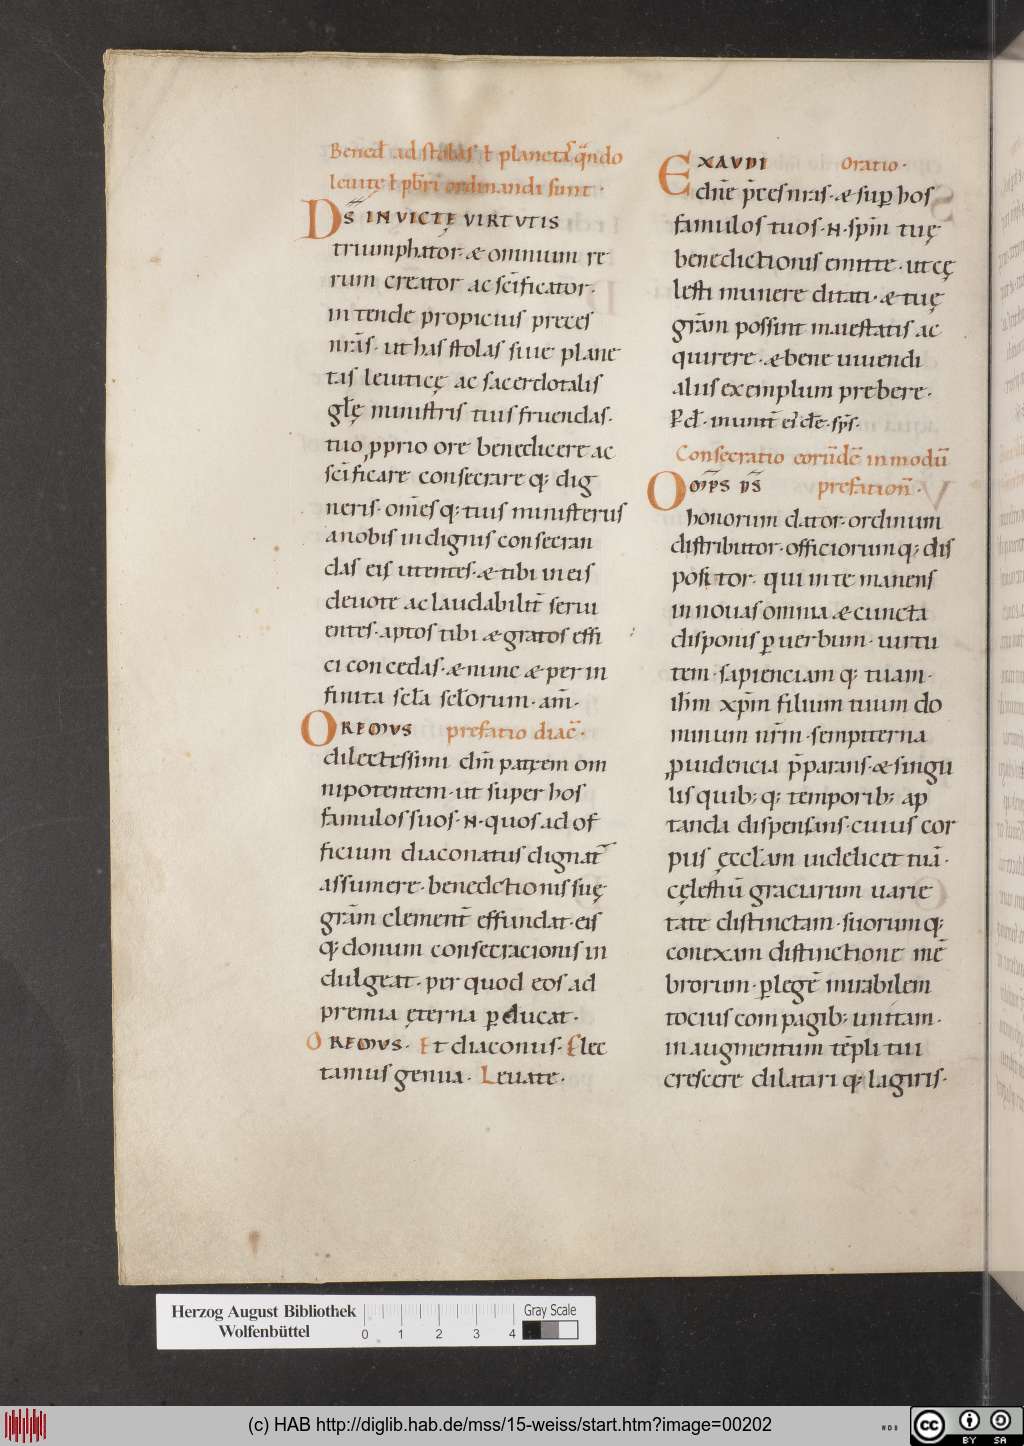 Bened̄ ad stolas ł planetas q̄ndo
leuitę ł pb̄ri ordinandi sunt ·
Ds̄ INVICTĘ VIRTVTIS
triumphator· & omnium re
rum creator ac sc̄ificator·
intende propicius preces
nrās· ut has stolas siue plane
tas leuiticę ac sacerdotalis
gl̄ę ministris tuis fruendas·
tuo ꝓprio ore benedicere ac
sc̄ificare consecrare q; dig
neris· om̄es q; tuis ministeriis
a nobis indignis consecran
das eis utentes· & tibi in eis
deuote ac laudabilit̄ serui
entes· aptos tibi & gratos effi
ci concedas· & nunc & per in
finita sc̄la sc̄lorum· am̄·
OREMVS prefatio diac̄·
dilectissimi dm̄ patrem om
nipotentem· ut super hos
famulos suos· N· quos ad of
ficium diaconatus dignat̄
assumere· benedictionis suę
grām clement̄ effundat· eis
q; donum consecracionis in
dulgeat· per quod eos ad
premia ęterna ꝑducat·
OREMVS· Et diaconus· Flec
tamus genua· Leuate·
EXAVDI Oratio·
dn̄e p̄ces nrās· & suꝑ hos
famulos tuos· N· spm̄ tuę
benedictionis emitte· ut cę
lesti munere ditati· & tuę
grām possint maiestatis ac
quirere· & bene uiuendi
aliis exemplum prebere·
P̄ d̄· in unit̄ ei d̄e· sps̄·
Consecratio eorūdē in modū
OMP̄S DS̄ prefation̄·
honorum dator· ordinum
distributor· officiorum q; dis
positor· qui in te manens
innouas omnia & cuncta
disponis ꝑ uerbum· uirtu
tem· sapienciam q; tuam·
ih̄m xp̄m filium tuum do
minum nr̄m· sempiterna
ꝓuidencia p̄parans· & singu
lis quib; q; temporib; ap
tanda dispensans· cuius cor
pus ęccl̄am uidelicet tuā·
cęlestiū graciarum uarie
tate distinctam· suorum q;
conexam distinctione mē
brorum· ꝑ legē mirabilem
tocius compagib; unitam·
in augmentum tēpli tui
crescere dilatari q; lagiris·
Herzog August Bibliothek
Wolfenbüttel
0 1 2 3 4
Gray Scale
(c) HAB http://diglib.hab.de/mss/15-weiss/start.htm?image=00202
WDB
cc
BY SA